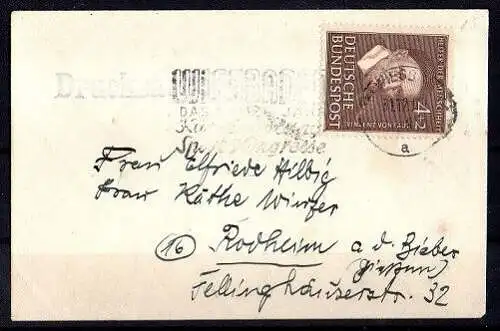 Drucksache
WIESBADEN
DAS
Kur
Sport Kongresse
HELFER DER MENSCHHEIT
DEUTSCHE
BUNDESPOST
4+2
VINZENZ VON PAUL
WIESBADEN
a
Frau Elfriede Hilbig
Frau Käthe Winter
(16) Rodheim a. d. Bieber
(Gießen)
Fellinghäuserstr. 32